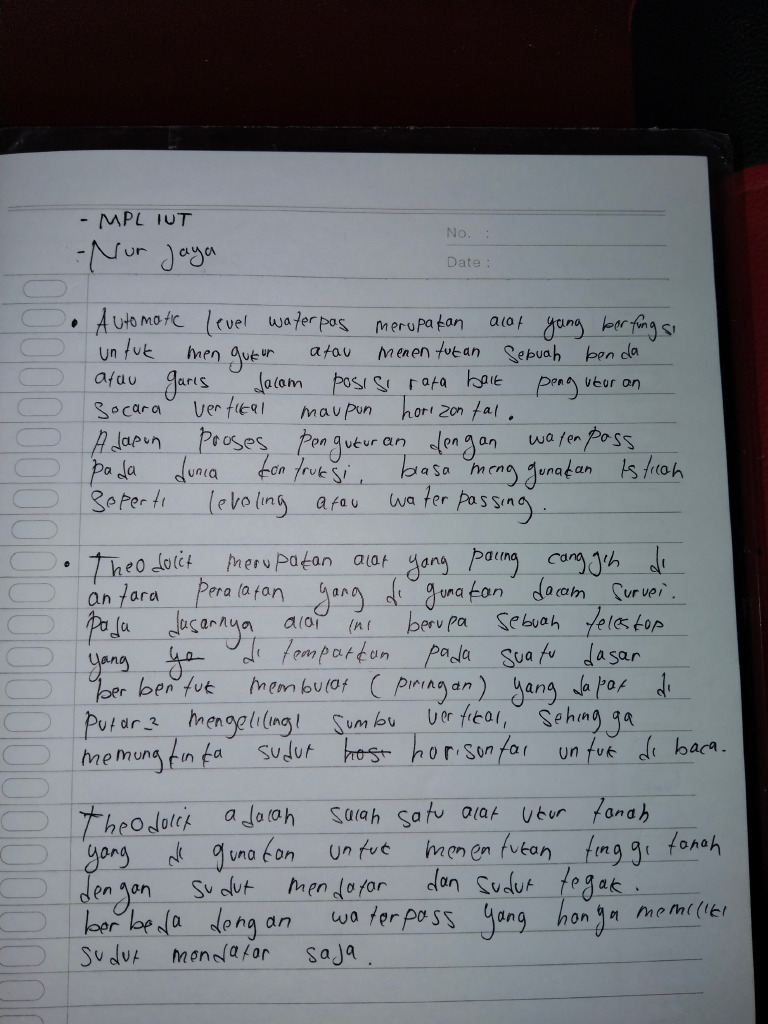 - MPL IUT
- Nur Jaya
No. :
Date :
• Automatic level waterpas merupakan alat yang berfungsi
untuk mengukur atau menentukan sebuah benda
atau garis dalam posisi rata baik pengukuran
secara vertikal maupun horizontal.
Adapun proses pengukuran dengan waterpass
pada dunia kontruksi, biasa menggunakan istilah
seperti leveling atau water passing.
• Theodolit merupakan alat yang paling canggih di
antara peralatan yang di gunakan dalam survei.
pada dasarnya alat ini berupa sebuah teleskop
yang ya di tempatkan pada suatu dasar
berbentuk membulat (piringan) yang dapat di
putar-2 mengelilingi sumbu vertikal, sehingga
memungkinka sudut hosr horisontal untuk di baca.
Theodolit adalah salah satu alat ukur tanah
yang di gunakan untuk menentukan tinggi tanah
dengan sudut mendatar dan sudut tegak.
berbeda dengan waterpass yang hanya memiliki
sudut mendatar saja.